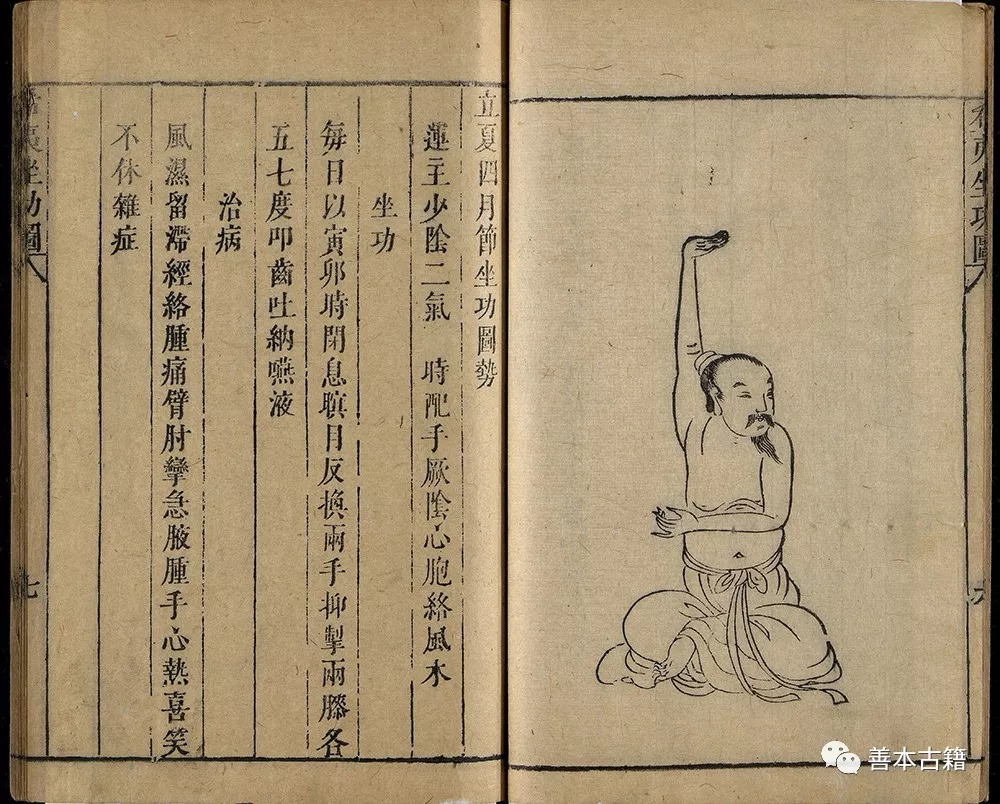 希夷坐功圖
立夏四月節坐功圖勢
運主少陰二氣　時配手厥陰心胞絡風木
坐功
每日以寅卯時閉息瞑目反換兩手抑掣兩膝各
五七度叩齒吐納嚥液
治病
風濕留滯經絡腫痛臂肘攣急腋腫手心熱喜笑
不休雜症
夷坐功圖 七
善本古籍